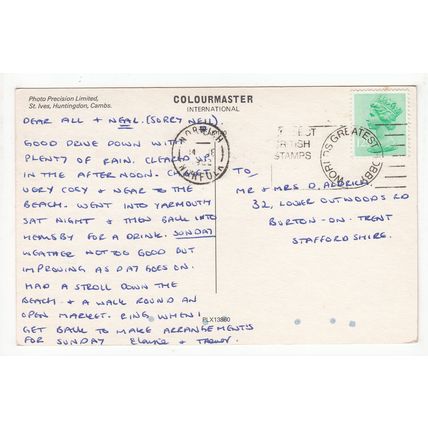 Photo Precision Limited,
St. Ives, Huntingdon, Cambs.
COLOURMASTER
INTERNATIONAL
DEAR ALL + NEAL. (SORRY NEIL)
GOOD DRIVE DOWN WITH
PLENTY OF RAIN. CLEARED UP
IN THE AFTERNOON. CHALET
VERY COSY & NEAR TO THE
BEACH. WENT INTO YARMOUTH
SAT NIGHT & THEN BACK INTO
HEMSBY FOR A DRINK. SUNDAY
WEATHER NOT TOO GOOD BUT
IMPROVING AS DAY GOES ON.
HAD A STROLL DOWN THE
BEACH & A WALK ROUND AN
OPEN MARKET. RING WHEN I
GET BACK TO MAKE ARRANGEMENTS
FOR SUNDAY
TO,
MR & MRS D. ALDRICH
32, LOWER OUTWOODS RD
BURTON-ON-TRENT
STAFFORDSHIRE.
NORWICH
NORFOLK
COLLECT
BRITISH
STAMPS
WORLDS GREATEST HOBBY
PLX13880